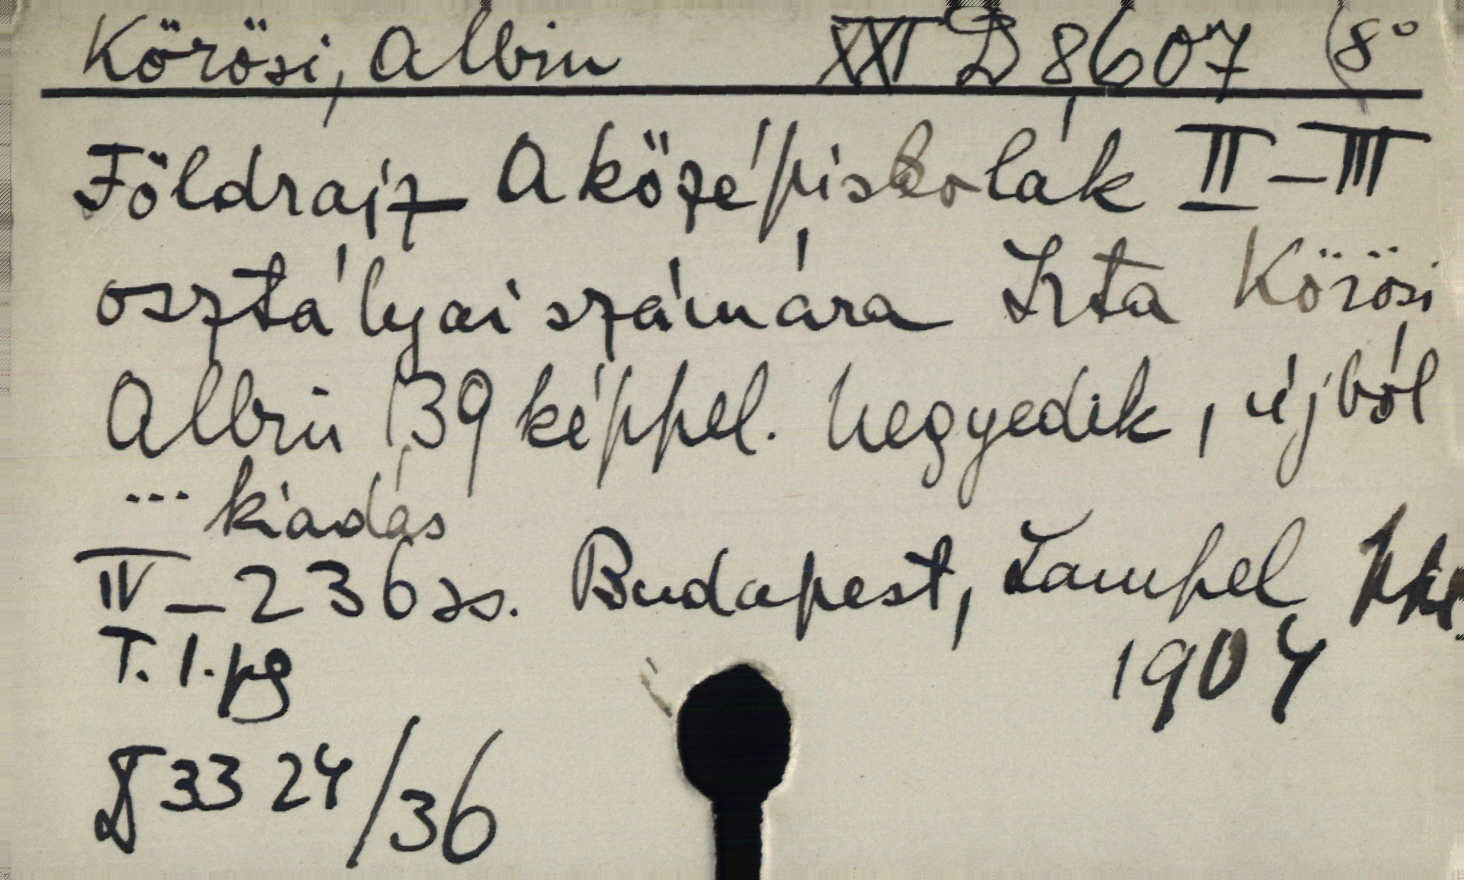 Körösi, Albin XXI D 8607 (8°
Földrajz - A középiskolák II-III
osztályai számára Irta Körösi
Albin 139 képpel. Negyedik, újból
... kiadás
IV-236 ss. Budapest, Lampel
T. 1. pg 1904
3324/36